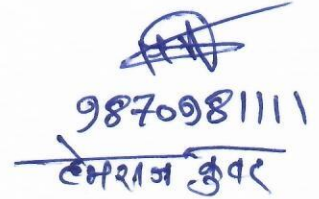 9870981111
हेमराज कुवर